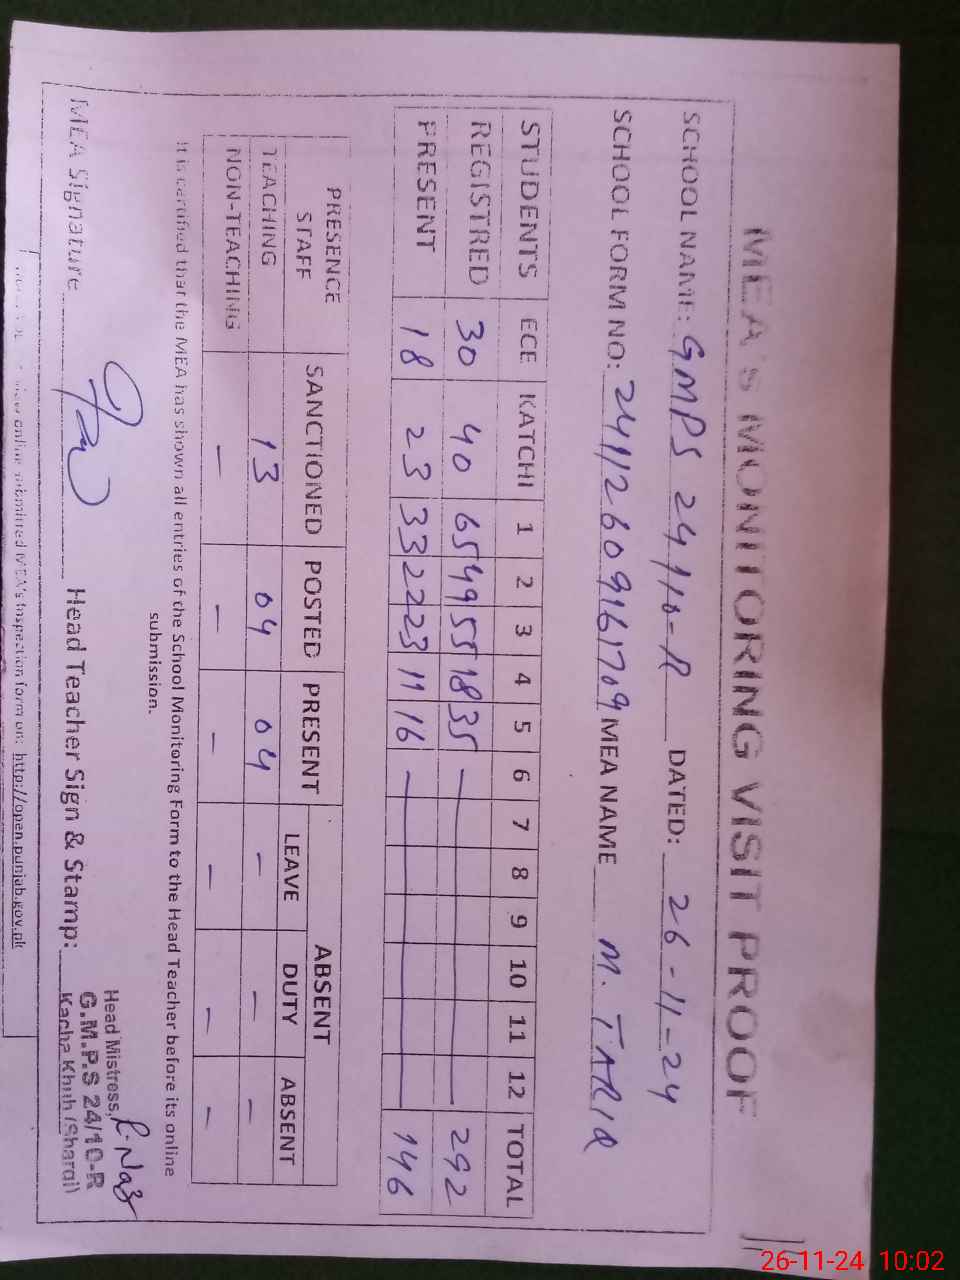 MEA'S MONITORING VISIT PROOF
SCHOOL NAME: GMPS 24/10-R DATED: 26-11-24
SCHOOL FORM NO: 24112609161709 MEA NAME M. TARIQ
STUDENTS ECE KATCHI 1 2 3 4 5 6 7 8 9 10 11 12 TOTAL
REGISTRED 30 40 65 49 55 18 35 — 292
PRESENT 18 23 33 22 23 11 16 — 146
PRESENCE STAFF SANCTIONED POSTED PRESENT ABSENT
LEAVE DUTY ABSENT
TEACHING 13 04 04 - - -
NON-TEACHING - - - - - -
It is certified that the MEA has shown all entries of the School Monitoring Form to the Head Teacher before its online
submission.
MEA Signature Head Teacher Sign & Stamp:
Head Mistress, R. Naz
G.M.P.S 24/10-R
Kacha Khuh (Sharqi)
view online submitted MEA's Inspection form on: http://open.punjab.gov.pk
26-11-24 10:02